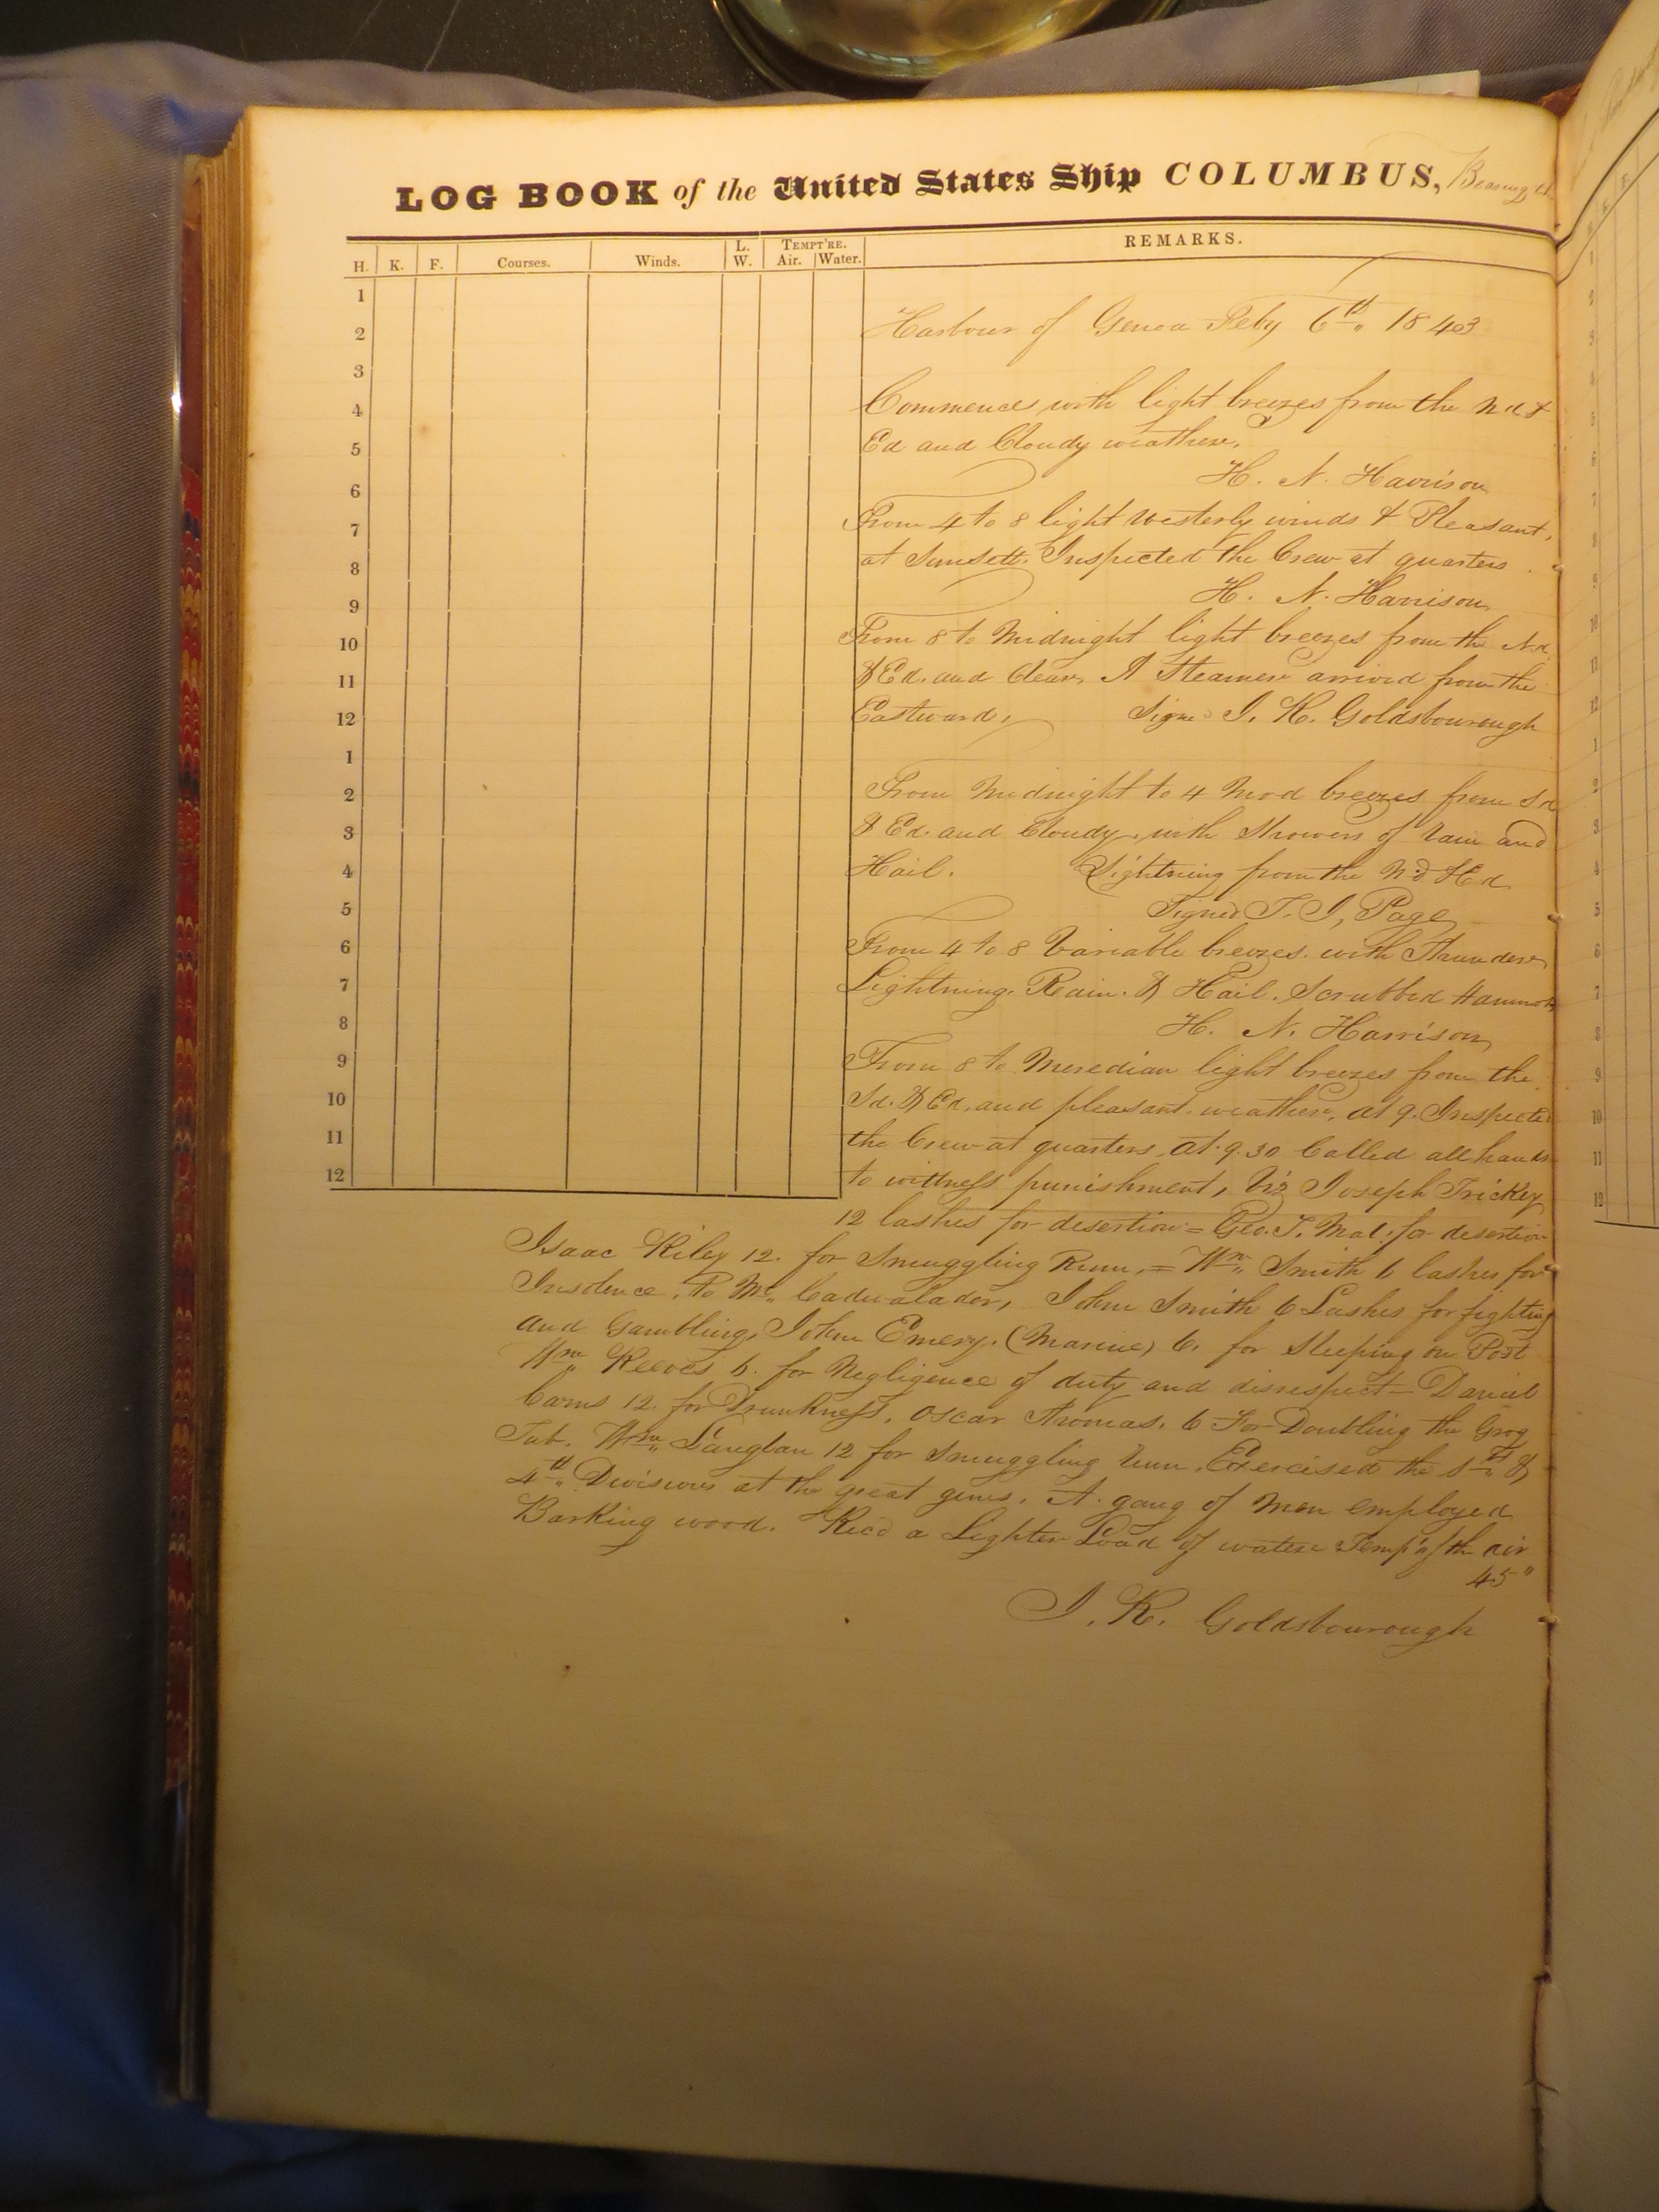 LOG BOOK of the United States Ship COLUMBUS, Bearing
H. K. F. Courses. Winds. L. W. TEMPT'RE. Air. Water. REMARKS.
1
2 Harbour of Genoa Feby 6th 1843
3
4 Commences with light breezes from the Nd &
5 Ed and Cloudy weather.
6 H. N. Harrison
7 From 4 to 8 light Westerly winds & Pleasant,
8 at Sunsett. Inspected the Crew at quarters
9 H. N. Harrison
10 From 8 to Midnight light breezes from the Nd
11 & Ed. and Clear, A Steamer arrived from the
12 Eastward, Signed I. K. Goldsbourough
1
2 From Midnight to 4 Mod breezes from Sd
3 & Ed. and Cloudy, with Showers of rain and
4 Hail. Lightning from the Nd & Ed
5 Signed T. J, Page
6 From 4 to 8 Variable breezes. with Thunder
7 Lightning. Rain. & Hail. Scrubbed Hammoks
8 H. N. Harrison
9 From 8 to Meredian light breezes from the
10 Sd. & Ed. and pleasant weather, at 9. Inspected
11 the Crew at quarters, at 9.30 Called all hands
12 to wittness punishment, Viz Joseph Trickey
12 lashes for desertion = Geo. T. Mal. for desertion
Isaac Riley 12. for Smuggling Rum, = Wm Smith 6 lashes for
Insolence, to Mr. Cadwalader, John Smith 6 Lashes for fighting
and Gambling, John Emery. (Marine) 6. for Sleeping on Post
Wm Reeves 6. for Negligence of duty and disrespect = Daniel
Carns 12. for Drunkness, Oscar Thomas. 6 For Doubling the Grog
Tub. Wm Langlan 12 for Smuggling rum, Exercised the 1st &
4th Divisions at the great guns. A gang of Men employed
Barking wood. Recd a Lighter Load of water Temp'r of th air
45"
I. K. Goldsbourough